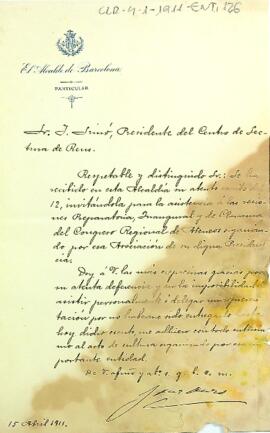 CLR-4-1-1911-ENT,126
El Alcalde de Barcelona
PARTICULAR
Sr. J. Simó, Presidente del Centro de Lec-
tura de Reus.
Respetable y distinguido Sr.: Se ha
recibido en esta Alcaldía su atento escrito del
12, invitándola para la asistencia á las sesio-
nes Preparatoria, Inaugural y de Clausura
del Congreso Regional de Ateneos organi
do por esa Asociación de su digna Presiden-
cia.
Doy á V. las mas expresivas gracias por
su atenta deferencia y en la imposibilidad de
asistir personalmente ó delegar una represen-
tación por no haberse sido entregado hasta
hoy dicho escrito, me adhiero con todo entusias-
mo al acto de cultura organizado por esa im-
portante entidad.
De V. afmo y at. s. q. b. s. m.
15 Abril 1911.